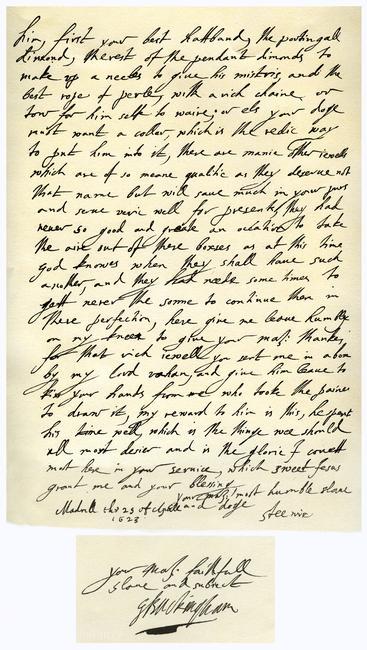 him, first your best hattband, the portingall
dimond, the rest of the pendant dimonds to
make up a necles to giue his mistris, and the
best rope of perle, with a rich chaine or
tow for him selfe to waire, or els your doge
must want a coller, which is the redie way
to put him into it, there are manie other iewells
which are of so meane qualitie as they deserue not
that name but will saue much in your purs
and serue verie well for presents, they had
neuer so good and greate an ocation to take
the aire out of there boxses as at this time
god knowes when they shall haue such
another, and they had neede some times to
gett nerer the sonne to continue them in
there perfection, here give me leaue humbly
on my knees to giue your maj: thankes
for that rich iewell you sent me in a box
by my lord vahan, and giue him leaue to
kis your hands from me who tooke the paines
to draw it, my reward to him is this, he spent
his time well, which is the thinge wee should
all most desier and is the glorie I couett
most here in your seruice, which sweet Jesus
grant me and your blessing
your maj: most humble slaue
Madrill the 25 of Aprill and doge
1623 Steenie
your maj: faithfull
slaue and subiect
GBuckingham